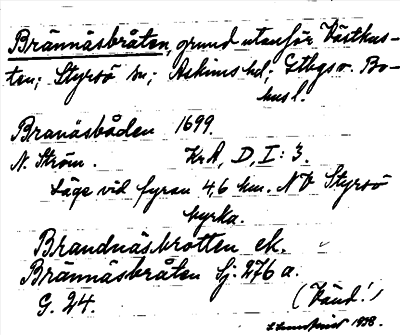 Brännäsbråten, grund utanför Västkus-
ten; Styrsö sn; Askims hd; Gtbgs o. Bo-
hus l.
Branäsbåden 1699.
N. Ström. KrA, D, I: 3.
Läge vid fyran 4,6 km. NV Styrsö
kyrka.
Brandnäsbrotten ek.
Brännäsbråten Sj. 276 a.
G. 24. (Vänd!)
1938.